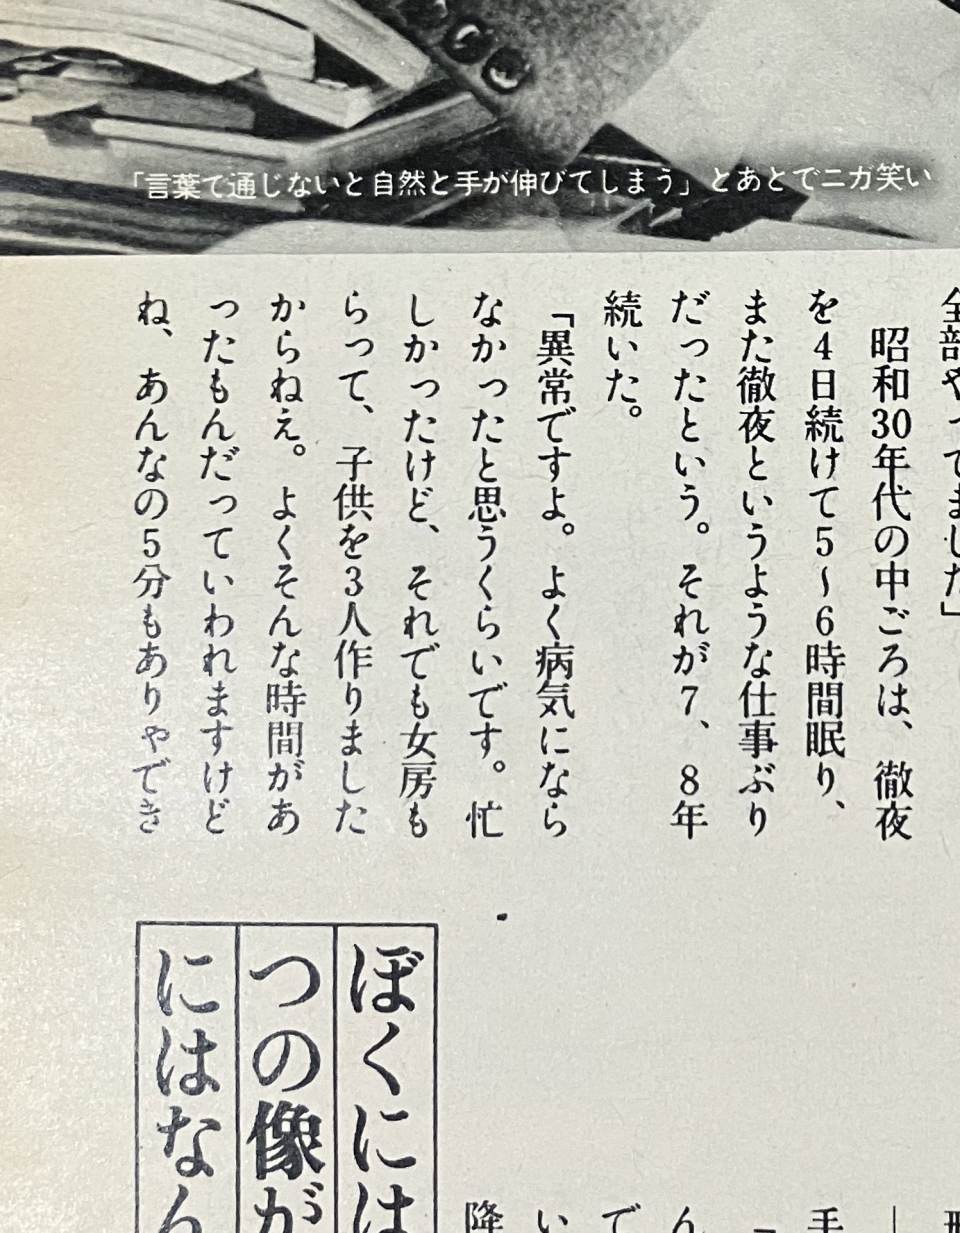 「言葉で通じないと自然と手が伸びてしまう」とあとでニガ笑い
全部やってました」
昭和30年代の中ごろは、徹夜
を4日続けて5〜6時間眠り、
また徹夜というような仕事ぶり
だったという。それが7、8年
続いた。
「異常ですよ。よく病気になら
なかったと思うくらいです。忙
しかったけど、それでも女房も
らって、子供を3人作りました
からねえ。よくそんな時間があ
ったもんだっていわれますけど
ね、あんなの5分もありゃでき
ぼくには
つの像が
にはなん
手
ー
ん
で
い
降